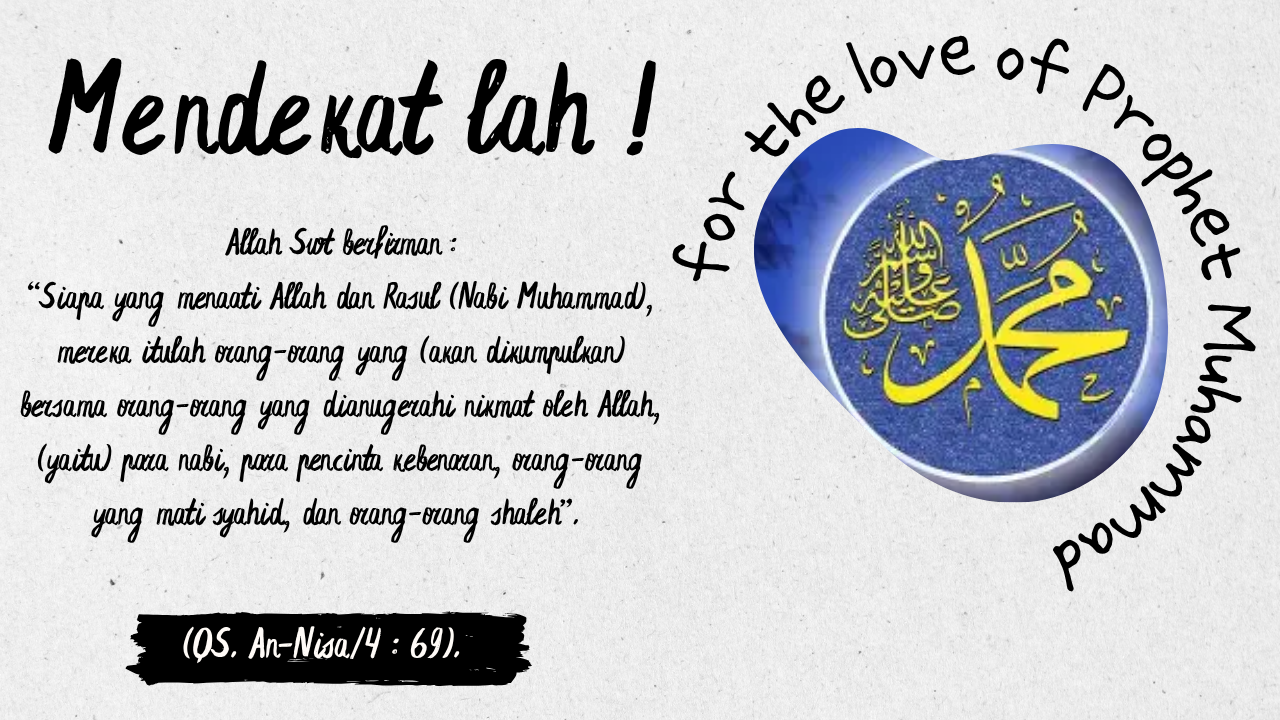 Mendekat lah !
Allah Swt berfirman :
“Siapa yang menaati Allah dan Rasul (Nabi Muhammad),
mereka itulah orang-orang yang (akan dikumpulkan)
bersama orang-orang yang dianugerahi nikmat oleh Allah,
(yaitu) para nabi, para pencinta kebenaran, orang-orang
yang mati syahid, dan orang-orang shaleh”.
(QS. An-Nisa/4 : 69).
for the love of Prophet Muhammad
محمد
صلى الله عليه وسلم